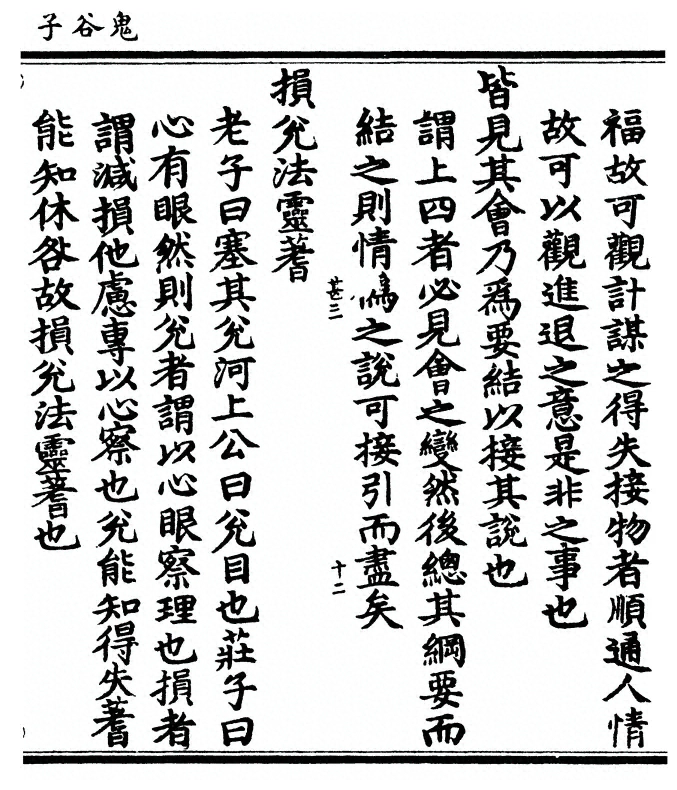 鬼谷子
福故可觀計謀之得失接物者順通人情
故可以觀進退之意是非之事也
皆見其會乃爲要結以接其說也
謂上四者必見會之變然後總其綱要而
結之則情僞之說可接引而盡矣
甚三
十二
損兊法靈蓍
老子曰塞其兊河上公曰兊目也莊子曰
心有眼然則兊者謂以心眼察理也損者
謂減損他慮專以心察也兊能知得失蓍
能知休咎故損兊法靈蓍也